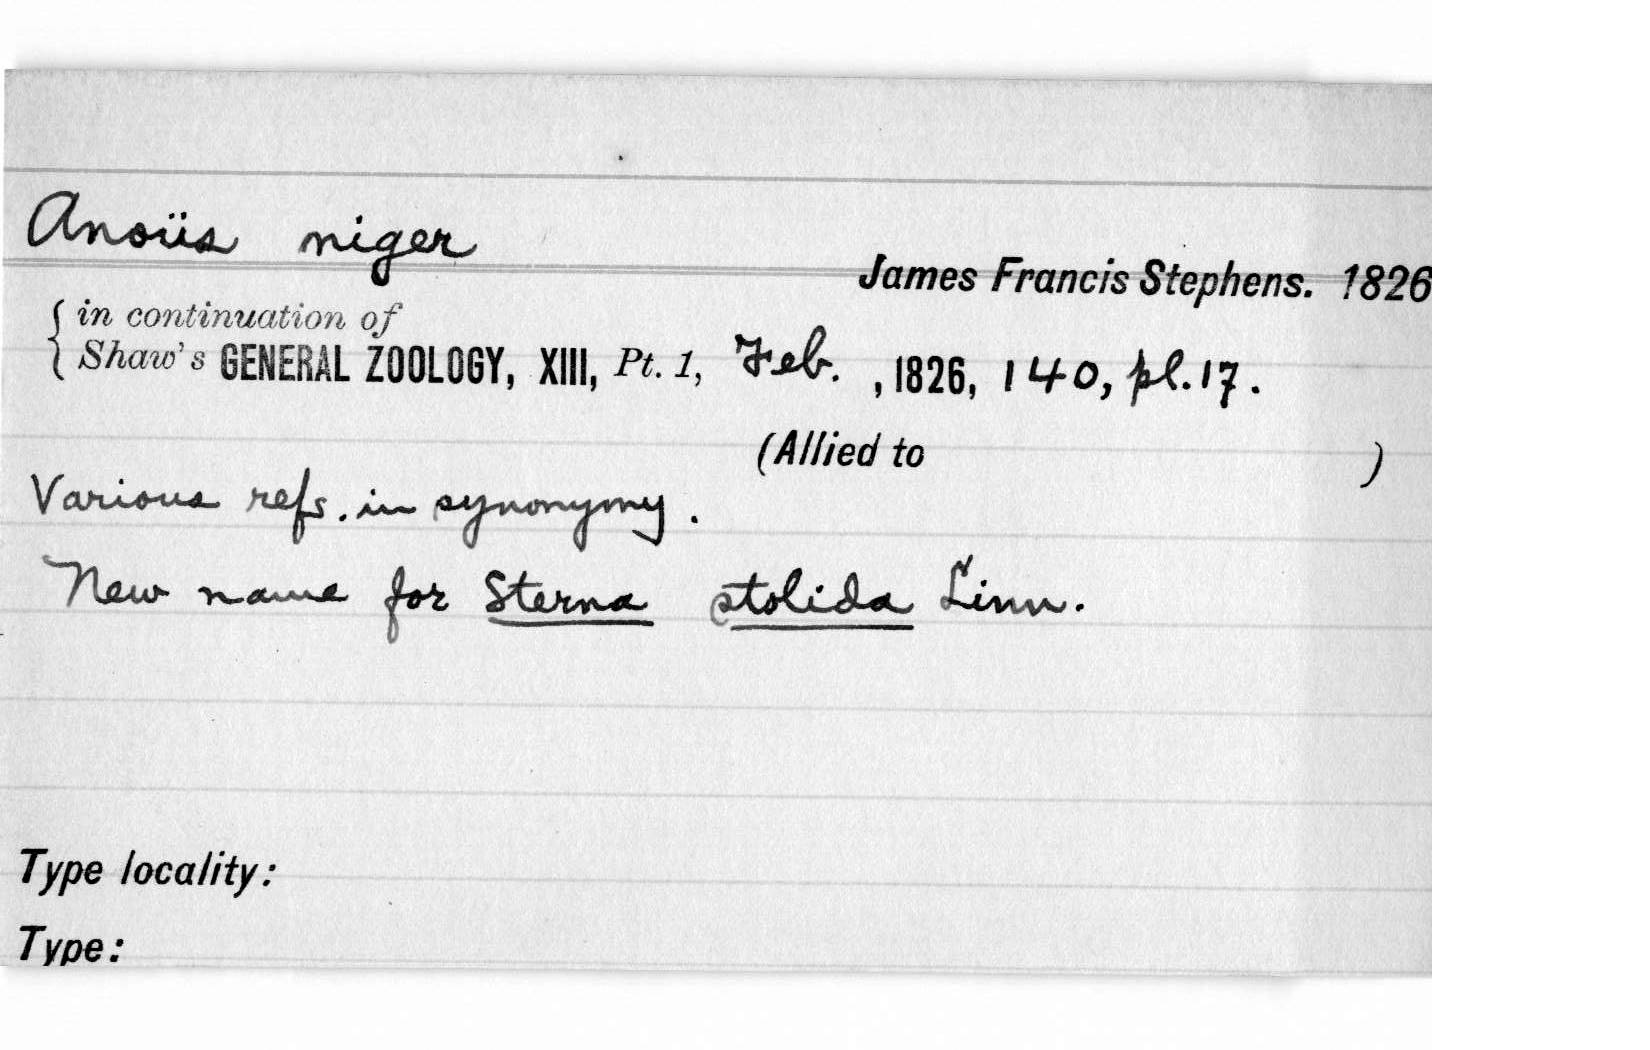 Anoüs niger
James Francis Stephens. 1826
{ in continuation of
Shaw's GENERAL ZOOLOGY, XIII, Pt. 1, Feb. , 1826, 140, pl. 17.
(Allied to )
Various refs. in synonymy.
New name for Sterna stolida Linn.
Type locality:
Type: